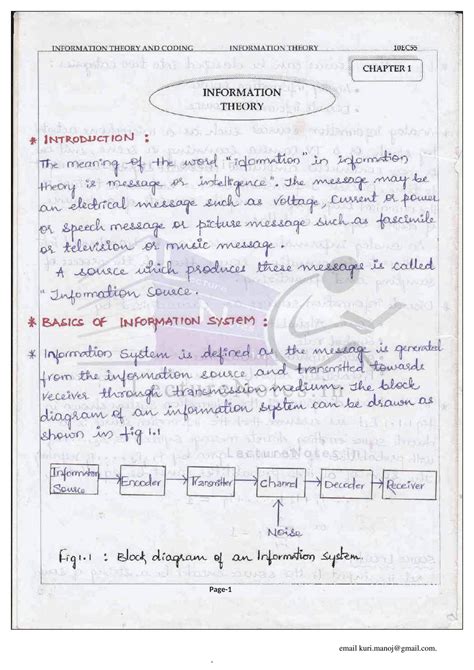 INFORMATION THEORY AND CODING INFORMATION THEORY 10EC55
CHAPTER 1
INFORMATION
THEORY
* INTRODUCTION :
The meaning of the word "information" in information
theory is message or intelligence". The message may be
an electrical message such as voltage, current or power
or speech message or picture message such as facsimile
or television or music message.
A source which produces these messages is called
"Information Source.
* BASICS OF INFORMATION SYSTEM :
* Information System is defined as the message is generated
from the information source and transmitted towards
receiver through transmission medium. The block
diagram of an information system can be drawn as
shown in fig 1.1
LectureNotes.in
Information
Source
Encoder
Transmitter
Channel
Decoder
Receiver
Noise
Fig 1.1 : Block diagram of an Information system
Page-1
email kuri.manoj@gmail.com.